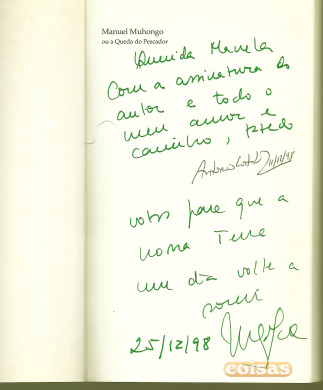 Manuel Muhongo
ou a Queda do Pescador
Querida Manela
Com a assinatura do
autor e todo o
meu amor e
carinho, peço
11/12/98
votos para que a
nossa Terra
um dia volte a
sorrir
25/12/98
coisas